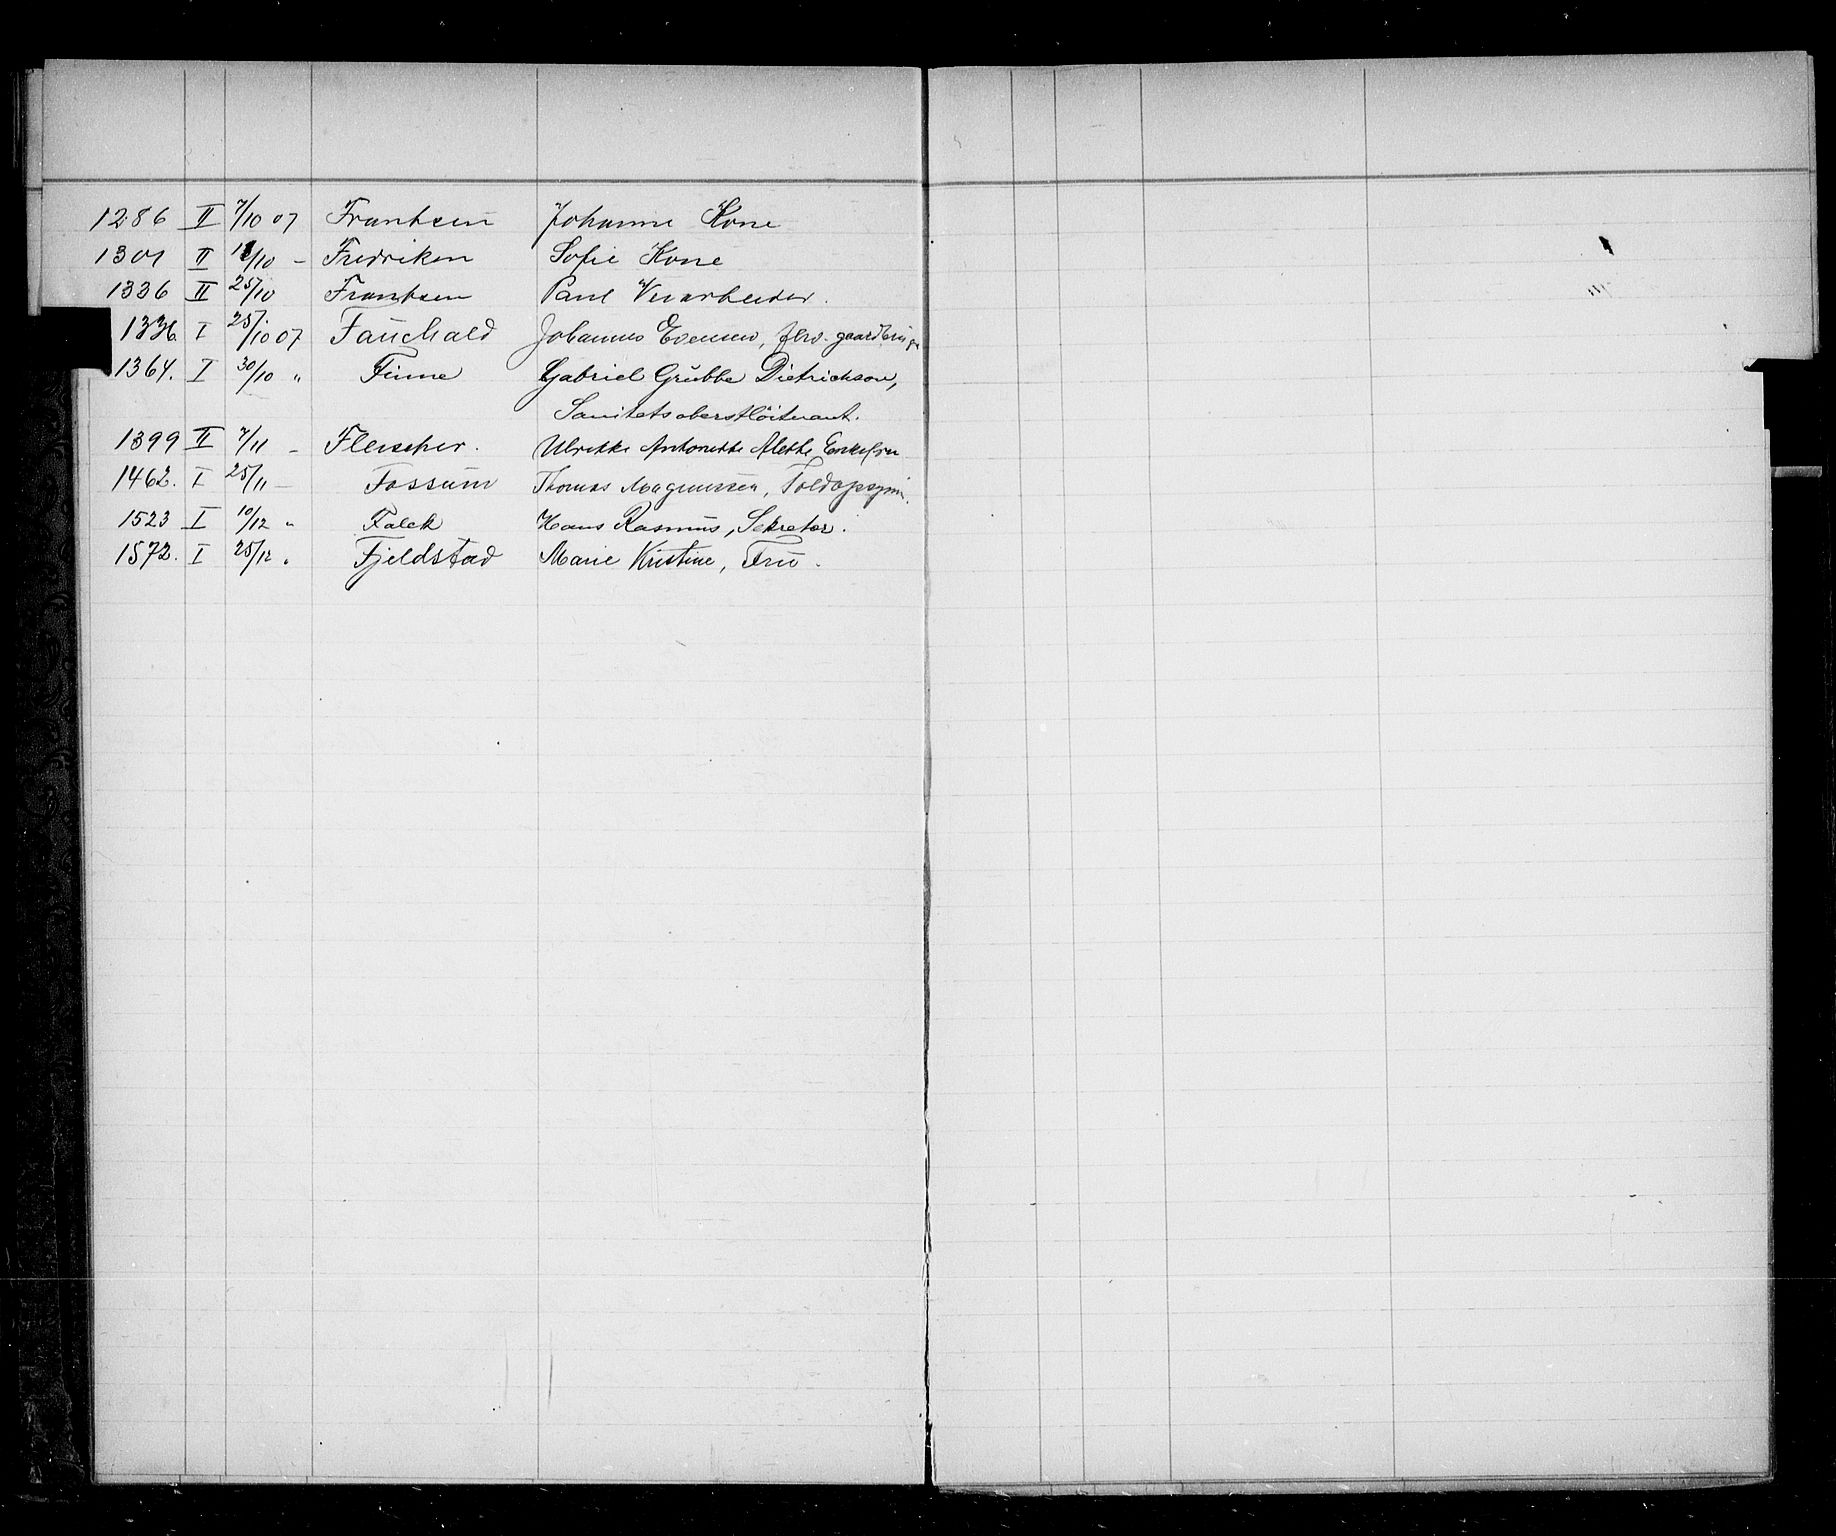 1286 II 7/10 07 Frantsen Johanne Kone
1301 II 11/10 – Fredriksen Sofie Kone
1336 II 25/10 Frantsen Paul Veiarbeider.
1336. I 25/10 07 Fauchald Johannes Evensen, fhv. gaardbruger
1364. I 30/10 " Finne Gabriel Grubbe Dietrichson,
Sanitetsoberstløitnant.
1399 II 7/11 – Fleischer. Ulrikke Antonette Alethe Enkefru
1462. I 25/11 – Fossum Thomas Magnussen, Toldopsynm.
1523 I 10/12 " Falck Hans Rasmus, Sekretær.
1572. I 25/12 " Fjeldstad Marie Kristine, Fru.